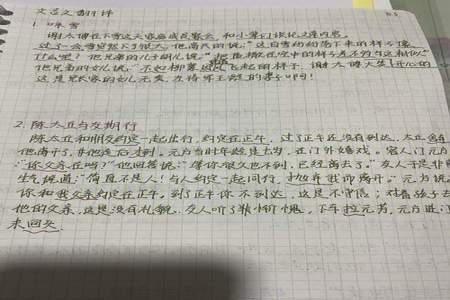 文言文翻译
1. 咏雪
谢太傅在下雪天家庭成员聚会,和小辈们谈论文章内容。
过了一会雪突然下得很大,他高兴的说:"这白雪纷纷扬扬下来的样子像
什么呢?他兄弟的儿子胡儿说:"把盐撒在空中的样子差不多有这相似"
他兄弟的女儿说:"不如柳絮迎风飞起的样子,谢太傅大笑,开心的
这是兄长家的女儿无奕,左将军王凝的妻子啊!
2. 陈太丘与友期行
陈太丘和朋友约定一起出行,约定在正午,过了正午还没有到达,太丘
他离开了,并他走后才到。元方当时年龄是七岁,在门外嬉戏。客人问元方
"你父亲在吗?"他回答说:"等你很久也不到,已经离去了。"友人于是非
生气,便道:"简直不是人!与人约定一起同行,抛弃我而离开。"元方说
你和我父亲约定在正午。到了正午你不到达,这是不守信;对着孩子
他的父亲,这是没有礼貌。友人听了
下车拉元方,元方进
未回头.